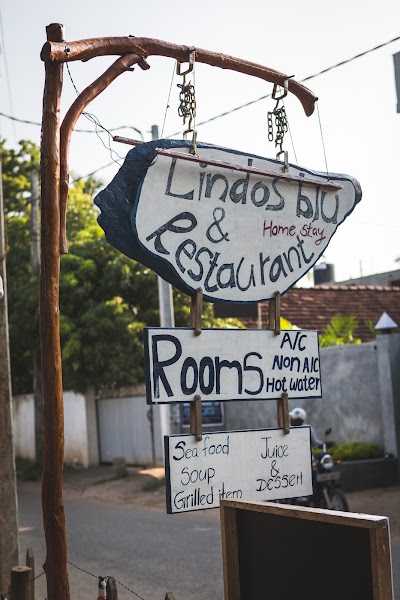 Lindos blu
& Home stay
Restaurant
Rooms A/C
Non A/C
Hot water
Sea food Juice
Soup &
Grilled item Dessert